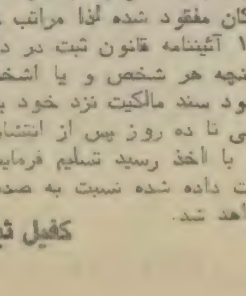 کان مفقود شده لذا مراتب
۱ آئیننامه قانون ثبت در
چه هر شخص و یا اشخ
ود سند مالکیت نزد خود
ی تا ده روز پس از انتشا
با اخذ رسید تسلیم فرمایی
ت داده شده نسبت به صد
هد شد.
کفیل ث